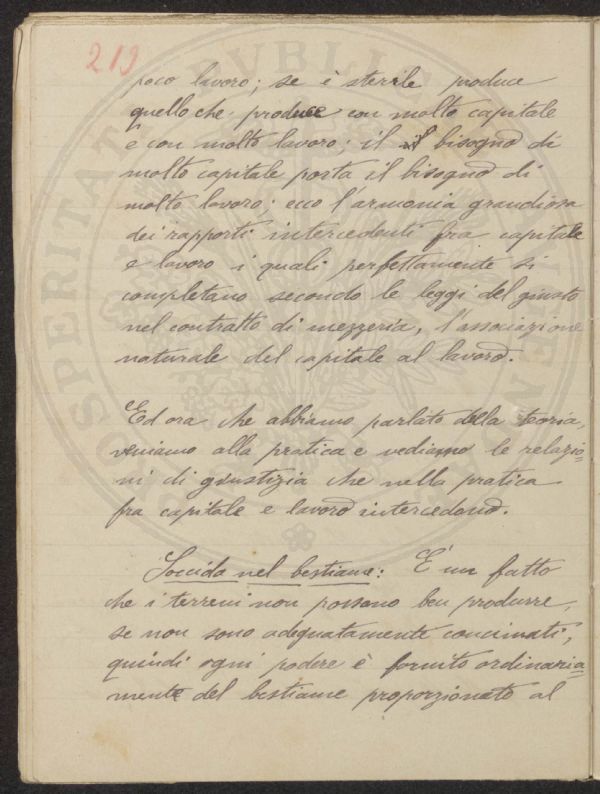 213
poco lavoro; se è sterile produce
quello che produce con molto capitale
e con molto lavoro; il bisogno di
molto capitale porta il bisogno di
molto lavoro; ecco l'armonia grandiosa
dei rapporti intercedenti fra capitale
e lavoro i quali perfettamente si
completano secondo le leggi del giusto
nel contratto di mezzeria, l'associazione
naturale del capitale al lavoro.
Ed ora che abbiamo parlato della teoria,
veniamo alla pratica e vediamo le relazio=
ni di giustizia che nella pratica
fra capitale e lavoro intercedono.
Soccida nel bestiame: È un fatto
che i terreni non possono ben produrre,
se non sono adeguatamente concimati,
quindi ogni podere è fornito ordinaria=
mente del bestiame proporzionato al